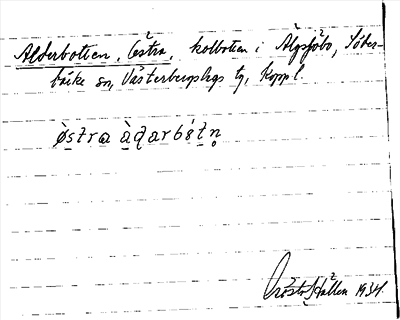 Alderbotten, Östra, kolbotten i Älgsjöbo, Söder-
bärke sn, Västerbergslags tg, Koppl.
òstra àdarbótn̥
Hällen 1934.